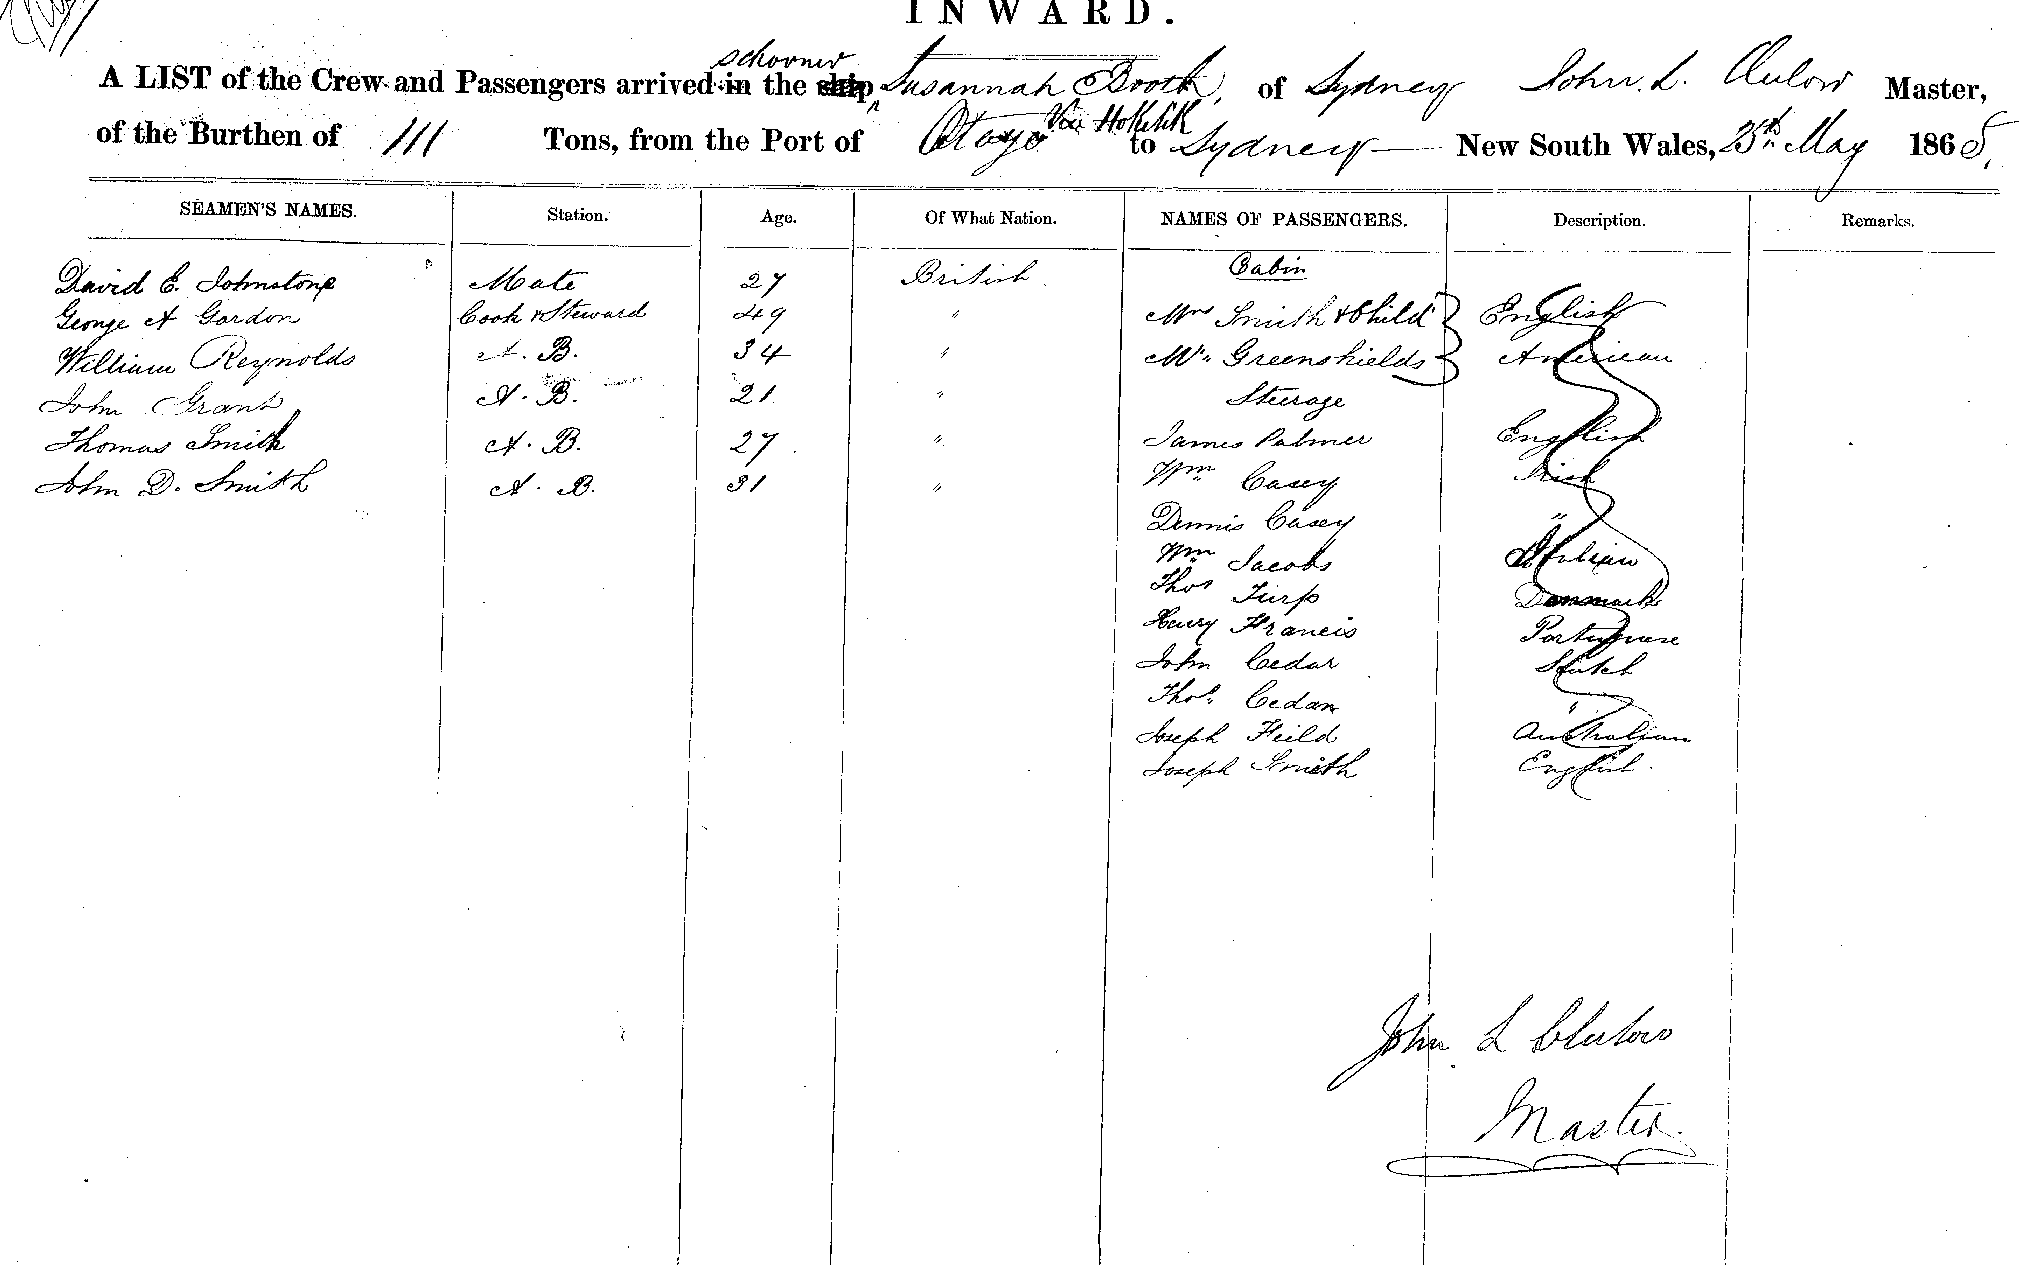 INWARD.
schooner
A LIST of the Crew and Passengers arrived in the ship Susannah Booth, of Sydney John. L. Clulow Master,
Via Hokitik
of the Burthen of 111 Tons, from the Port of Otago to Sydney New South Wales, 25th May 1865,
SEAMEN'S NAMES. Station. Age. Of What Nation. NAMES OF PASSENGERS. Description. Remarks.
Cabin
David E. Johnstone Mate 27 British
George A Gordon Cook & Steward 49 " Mrs Smith & Child English
William Reynolds A. B. 34 " Mr. Greenshields American
John Grant A. B. 21 " Steerage
Thomas Smith A. B. 27 " James Palmer English
John D. Smith A. B. 31 " Wm Casey Irish
Dennis Casey "
Wm Jacobs Italian
Thos Turp Denmark
Henry Francis Portuguese
John Cedar
Thos. Cedar "
Joseph Feild Australian
Joseph Smith English.
John L Clulow
Master.